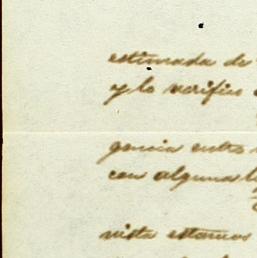 estimada de
y lo verifico
gencia entre
con alguna
vista estamos